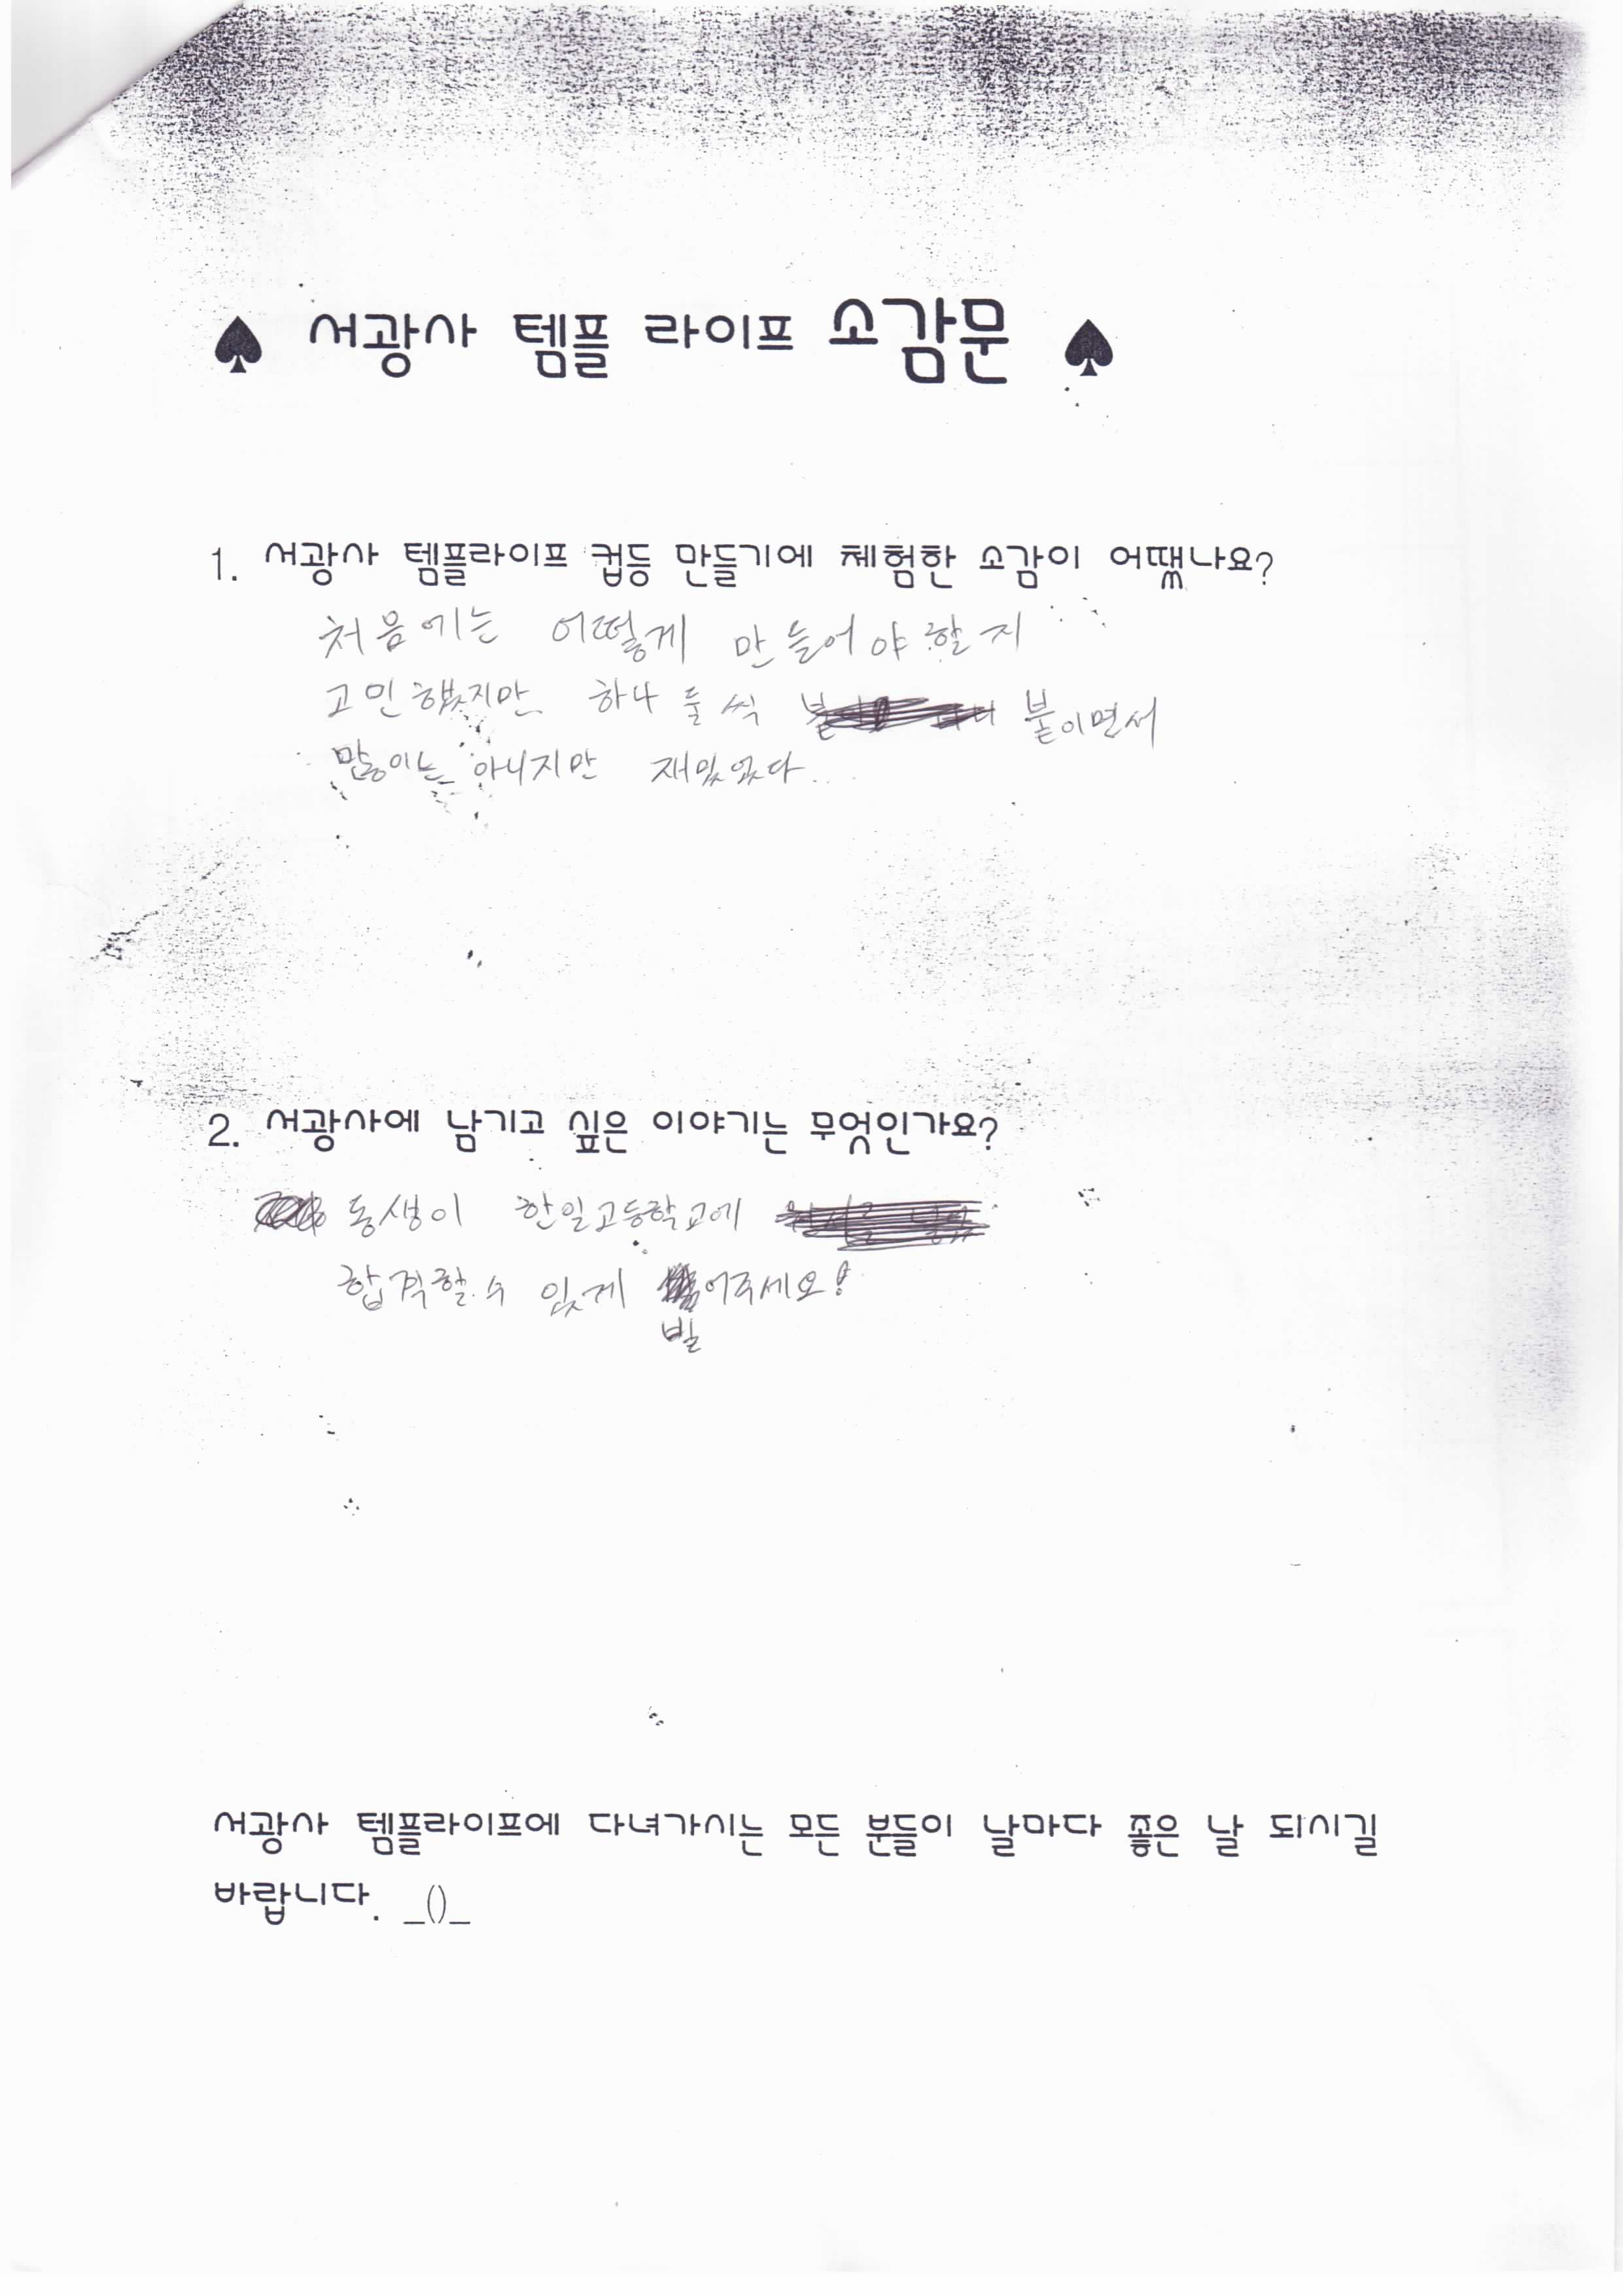 ♠ 서광사 템플 라이프 소감문 ♠
1. 서광사 템플라이프 컵등 만들기에 체험한 소감이 어땠나요?
처음에는 어떻게 만들어야 할지
고민했지만 하나 둘 씩 붙이면서
많이는 아니지만 재밌었다..
2. 서광사에 남기고 싶은 이야기는 무엇인가요?
동생이 한일고등학교에
합격할 수 있게 어주세요!
빌
서광사 템플라이프에 다녀가시는 모든 분들이 날마다 좋은 날 되시길
바랍니다. _()_